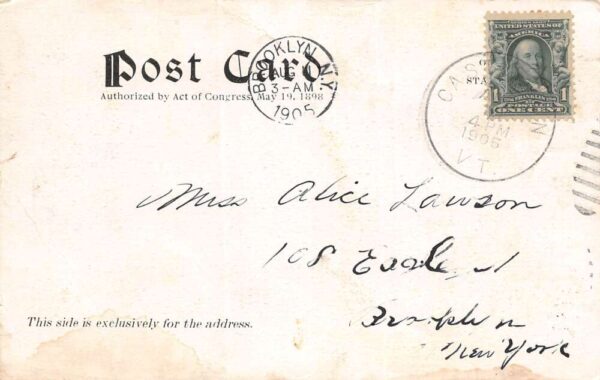 Post Card
Authorized by Act of Congress, May 19, 1898
BROOKLYN, N.Y.
AUG
3-AM
1905
CAS
4 PM
1905
VT.
UNITED STATES OF
AMERICA
FRANKLIN
POSTAGE
1 1
ONE CENT
Miss Alice Lawson
108
New York
This side is exclusively for the address.